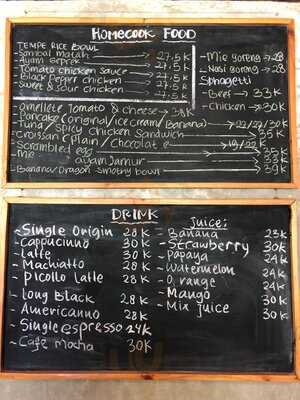 HOMECOOK FOOD
TEMPE RICE BOWL
- Sambal matah → 27.5 K
- Ayam geprek → 27.5 K
- Tomato chicken sauce → 27.5 K
- Black Pepper chicken → 27.5 K
- Sweet & sour chicken → 27.5 K
- Mie goreng → 28
- Nasi goreng → 28
Sphagetti
- Beef → 33 K
- Chicken → 30 K
- Omellete Tomato & cheese → 38 K
- Pancake (original/ice cream/Banana)
- Tuna / Spicy chicken sandwich → 35 K
- Crossan (Plain / chocolate → 19/22 K
- Scrambled egg → 35 K
- Mie ayam Jamur → 33 K
- Banana/Dragon smothy bowl → 39 K
DRINK
- Single Origin 28 K
- Cappucinno 30 K
- Latte 30 K
- Machiatto 28 K
- Picollo Latte 28 K
- Long Black 28 K
- Americanno 28 K
- Single espresso 24 K
- Cafe mocha 30 K
Juice:
- Banana 23 K
- Strawberry 30 K
- Papaya 24 K
- Watermelon 24 K
- Orange 24 K
- Mango 30 K
- Mix Juice 30 K